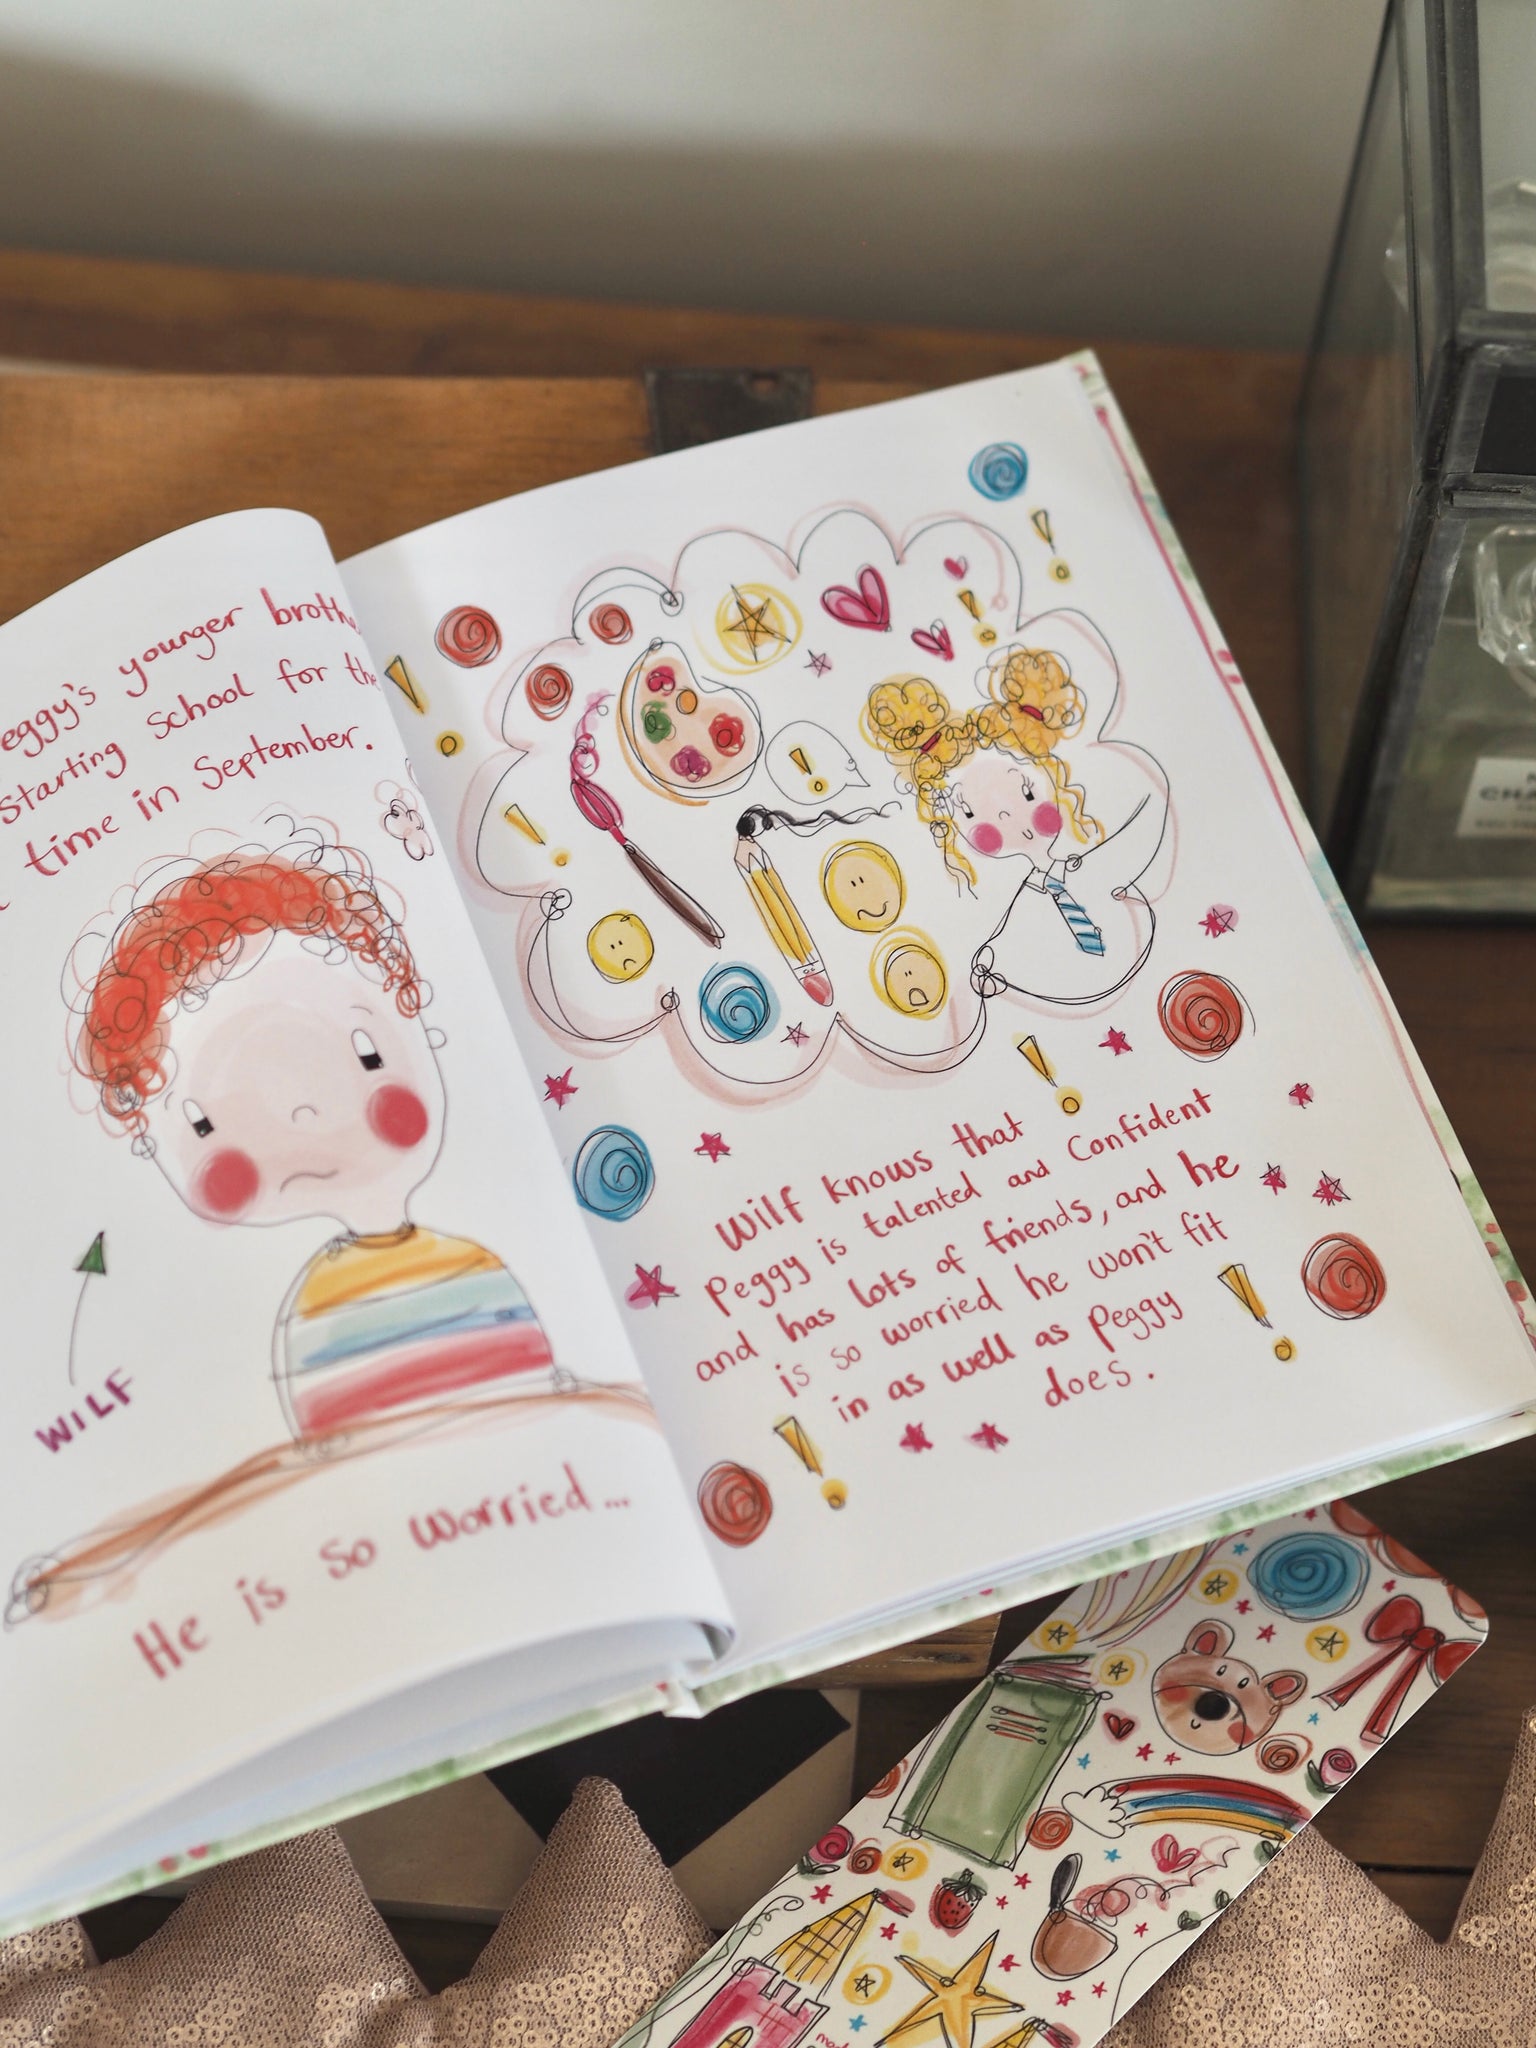 younger
starting School for the
time in September.
WILF
He is so worried...
Wilf knows that
Peggy is talented and Confident
and has lots of friends, and he
is so worried he won't fit
in as well as Peggy
does.